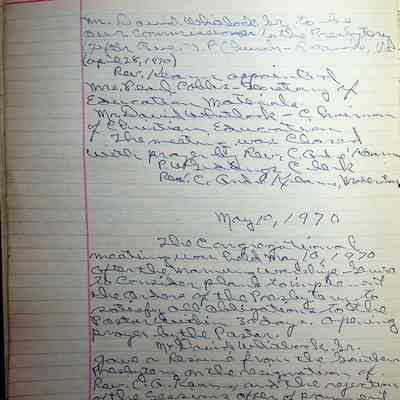 Mr. David Whitlock Jr. to be
our Commissioner to the Presbytery
(April 28, 1970)
Rev. Kearns appointed
Mrs. Pearl Cobbs - Secretary of
Education Materials.
Mr. David Whitlock - Chairman
of Christian Education
The meeting was closed
with prayer by Rev. C. Kearns
Clerk
Rev. C. Kearns, Moderator
May 10, 1970
The Congregational
meeting was held May 10, 1970
after the morning worship service
to consider plans to implement
the orders of the Presbytery to
satisfy all obligations to the
Pastor until 30 days. Opening
prayer by the Pastor.
Mr. David Whitlock Jr.
gave a resume from the
Presbytery on the resignation of
Rev. C. A. Kearns, and the rejection
of the Sessions offer of payment